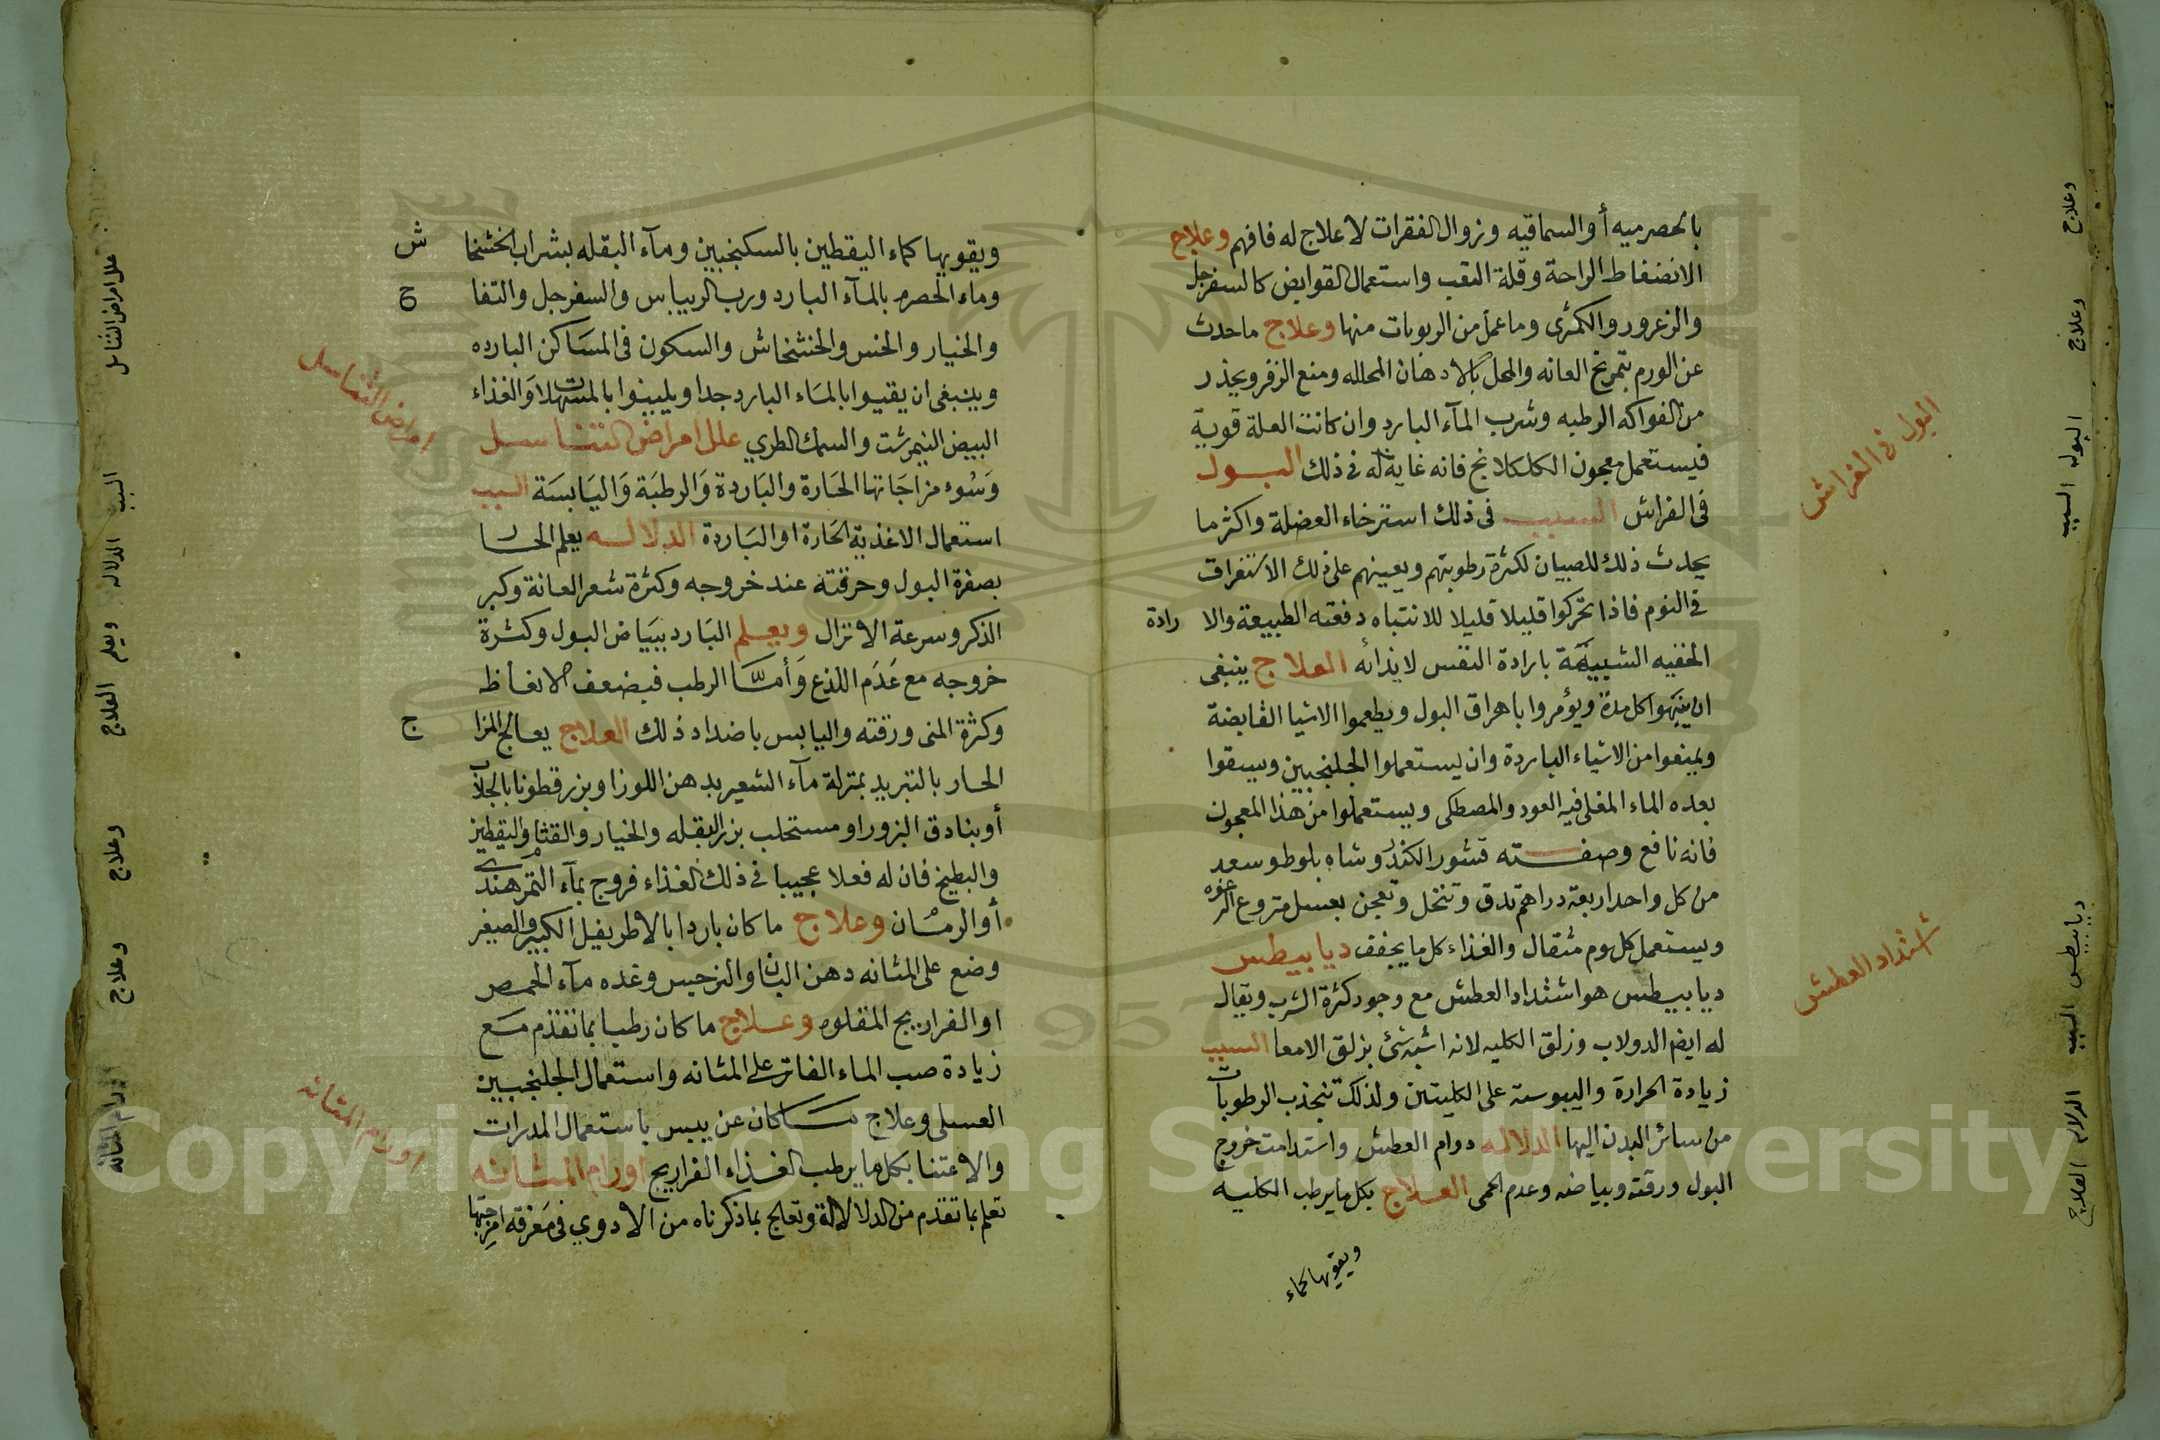 بالحصرميه أو السماقيه وزوال الفقرات لا علاج له فافهم وعلاج
الانضغاط الراحة وقلة التعب واستعمال القوابض كالسفرجل
والزعرور والكمثرى وما عمل من الربوبات منها وعلاج ما حدث
عن الورم بتمريخ العانه والمحل بالادهان المحلله ومنع الزفر ويحذر
من الفواكه الرطبه وشرب المآء البارد وان كانت العلة قوية
فيستعمل معجون الكلكلانج فانه غاية له فى ذلك البول
فى الفراش السبب فى ذلك استرخاء العضلة واكثر ما
يحدث ذلك للصبيان لكثرة رطوبتهم ويعينهم على ذلك الاستغراق
فى النوم فاذا تحركوا قليلا قليلا للانتباه دفعته الطبيعة والا رادة
الخفيه الشبيهة بارادة النفس لايذائه العلاج ينبغى
ان ينبهوا كل مدة ويؤمروا باهراق البول ويطعموا الاشيا القابضة
ويمنعوا من الاشياء الباردة وان يستعملوا الجلنجبين ويسقوا
بعده الماء المغلى فيه العود والمصطكى ويستعملوا من هذا المعجون
فانه نافع وصفته قشور الكندر وشاه بلوط وسعد
من كل واحد اربعة دراهم تدق وتنخل وتعجن بعسل منزوع الرغوه
ويستعمل كل يوم مثقال والغذاء كل ما يجفف ديابيطس
ديابيطس هو اشتداد العطش مع وجود كثرة الشرب ويقال
له ايضا الدولاب وزلق الكليه لانه اشبه شئ بزلق الامعا السبب
زيادة الحرارة واليبوسة على الكليتين ولذلك تنجذب الرطوبات
من سائر البدن اليها الدلاله دوام العطش واستدامت خروج
البول ورقته وبياضه وعدم الحمى العلاج بكل ما يرطب الكليه
ويقويها كماء
البول فى الفراش
اشتداد العطش
وعلاج
وعلاج
البول السبب
ديابيطس السبب
الدلاله العلاج
ويقويها كماء اليقطين بالسكنجبين ومآء البقله بشراب الخشخا ش
وماء الحصرم بالمآء البارد ورب الريباس والسفرجل والتفا ح
والخيار والخس والخشخاش والسكون فى المساكن البارده
وينبغى ان يقيوا بالماء البارد جدا ويلينوا بالمسهلات والغذاء
البيض النيمرشت والسمك الطري علل امراض التناسل
وسوء مزاجاتها الحارة والباردة والرطبة واليابسة السبب
استعمال الاغذية الحارة او الباردة الدلاله يعلم الحار
بصفرة البول وحرقته عند خروجه وكثرة شعر العانة وكبر
الذكر وسرعة الانزال ويعلم البارد ببياض البول وكثرة
خروجه مع عدم اللذع وأما الرطب فبضعف الانعاظ
وكثرة المنى ورقته واليابس باضداد ذلك العلاج يعالج المزا ج
الحار بالتبريد بمنزلة مآء الشعير بدهن اللوز او بزر قطونا بالجلاب
أو بنادق البزور او مستحلب بزر البقله والخيار والقثا واليقطين
والبطيخ فان له فعلا عجيبا فى ذلك الغذاء فروج بمآء التمر هندي
أو الرمان وعلاج ما كان باردا بالاطريفيل الكبير والصغير
وضع على المثانه دهن البان او النرجس وغده مآء الحمص
او الفراريج المقلوه وعلاج ما كان رطبا بما تقدم مع
زيادة صب الماء الفاتر على المثانه واستعمال الجلنجبين
العسلى وعلاج ما كان عن يبس باستعمال المدرات
والاعتنا بكل ما يرطب الغذاء الفراريج اورام المثانه
تعلم بما تقدم من الدلالالة وتعالج بما ذكرناه من الادوي فى معرفة امزجتها
امراض التناسل
اورام المثانه
علل امراض التناسل
السبب الدلاله ويعلم العلاج
وعلاج
وعلاج
اورام المثانه
Copyright © King Saud University
1957